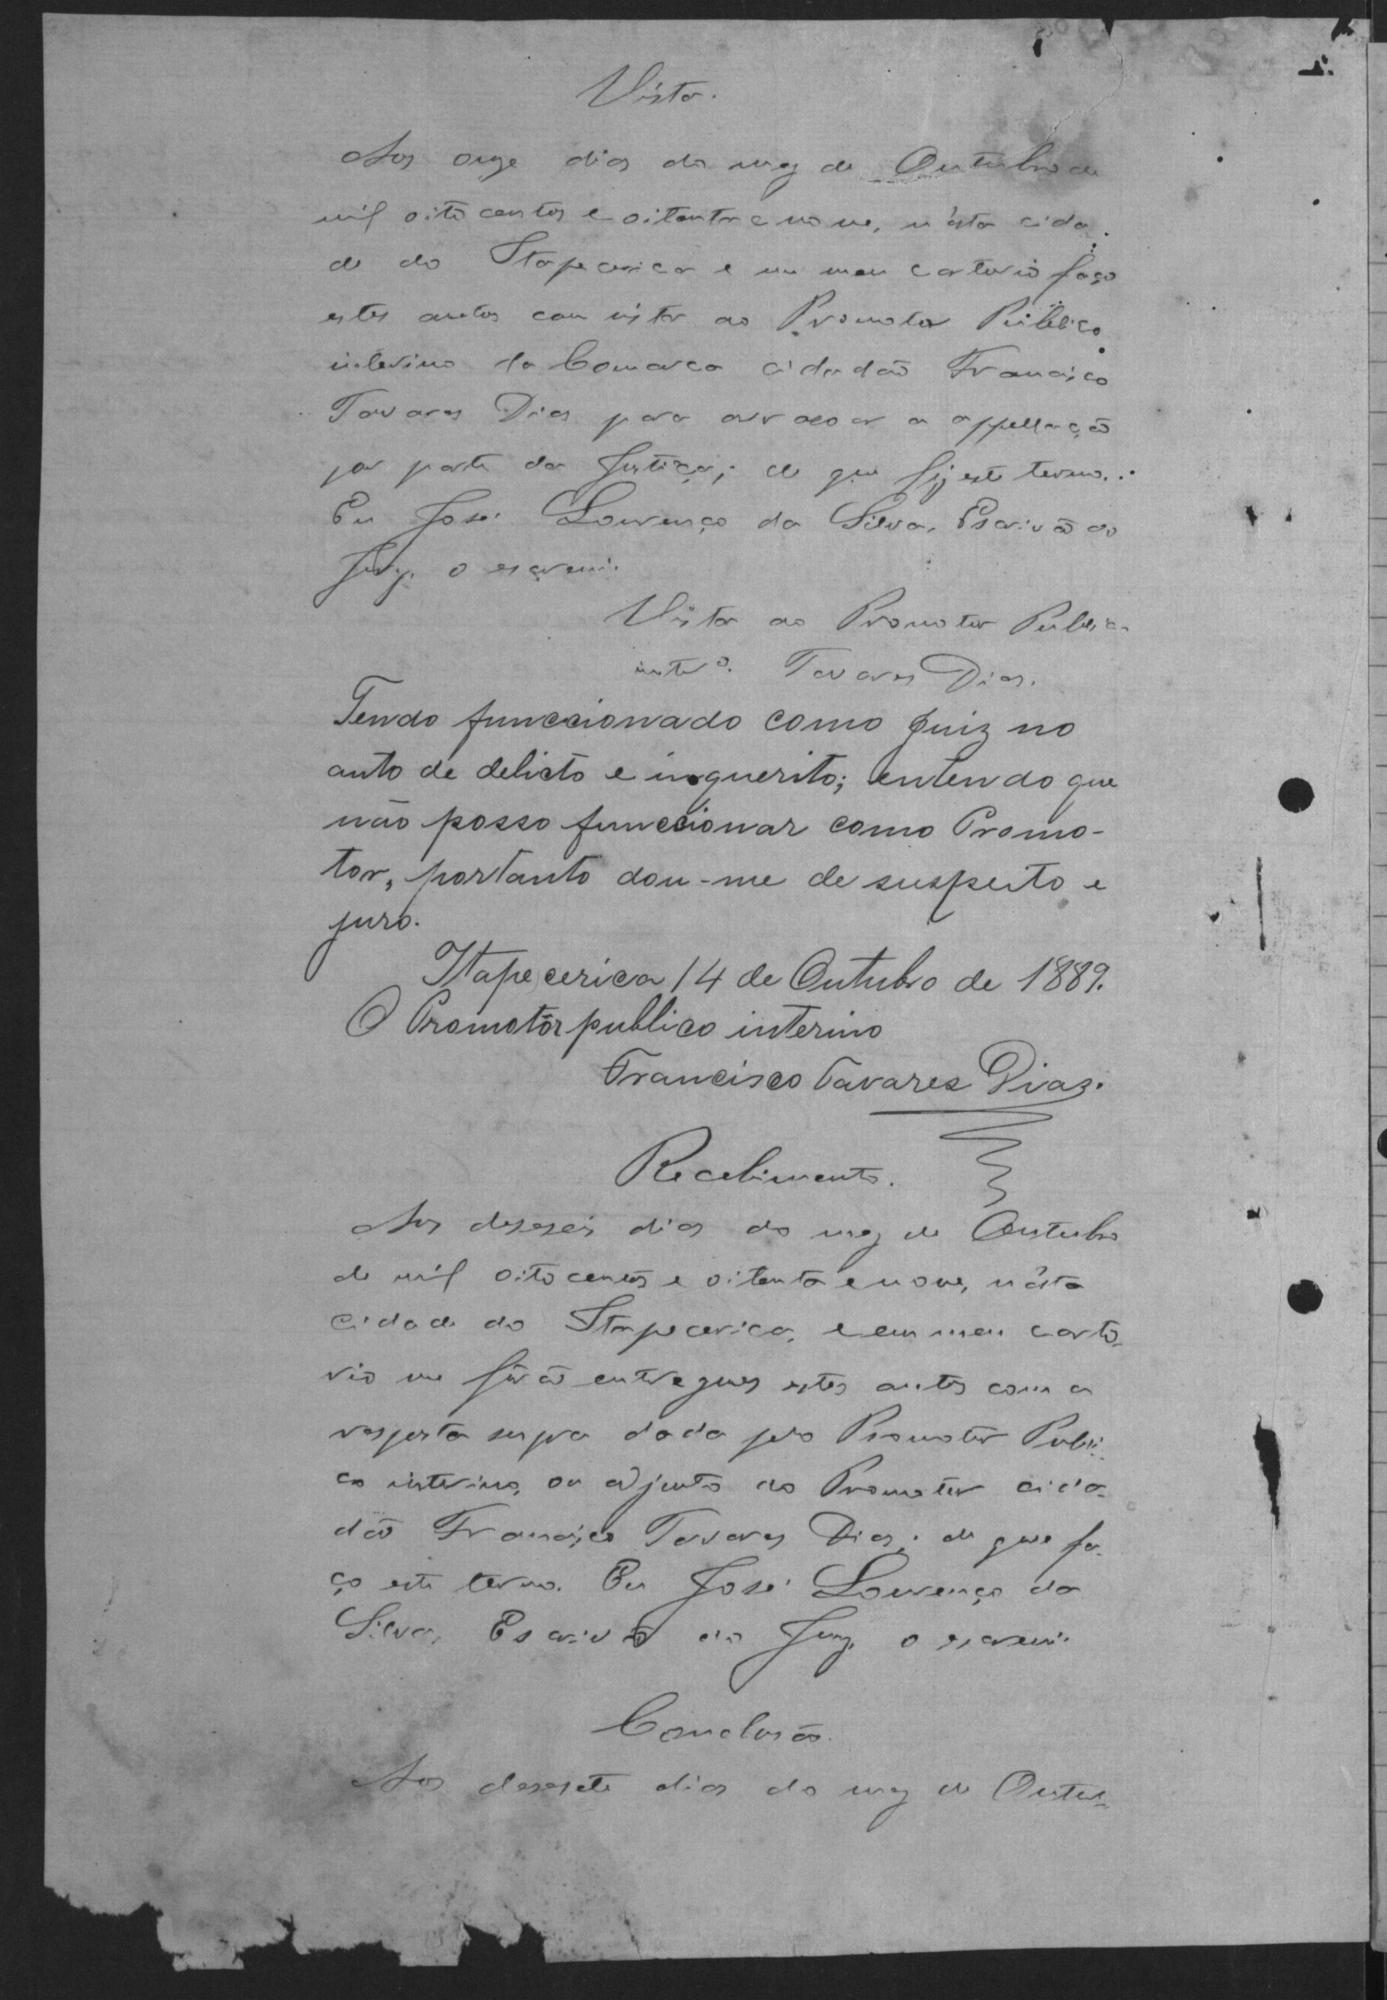 Vista.
Aos onze dias do mez de Outubro de
mil oito centos e oitenta e nove, n'esta cida
de do Itapecerica e em meu cartorio faço
estes autos com vista ao Promotor Publico
interino da Comarca cidadão Francisco
Tavares Dias para arrazoar a appellação
por parte da Justiça; de que fiz este termo.
Eu José Lourenço da Silva, Escrivão do
Jury, o escrevi.
Vista ao Promotor Publico
inter.º Tavares Dias.
Tendo funccionado como Juiz no
auto de delicto e inquerito; entendo que
não posso funccionar como Promo-
tor, portanto dou-me de suspeito e
juro.
Itapecerica 14 de Outubro de 1889.
O Promotor publico interino
Francisco Tavares Diaz.
Recebimento.
Aos deseseis dias do mez de Outubro
de mil oito centos e oitenta e nove, n'esta
cidade do Itapecerica, e em meu carto-
rio me fôrão entregues estes autos com a
resposta supra dada pelo Promotor Publi-
co interino, ou adjunto do Promotor cida-
dão Francisco Tavares Dias; de que fa-
ço este termo. Eu José Lourenço da
Silva, Escrivão do Jury, o escrevi.
Conclusão.
Aos desesete dias do mez de Outu-